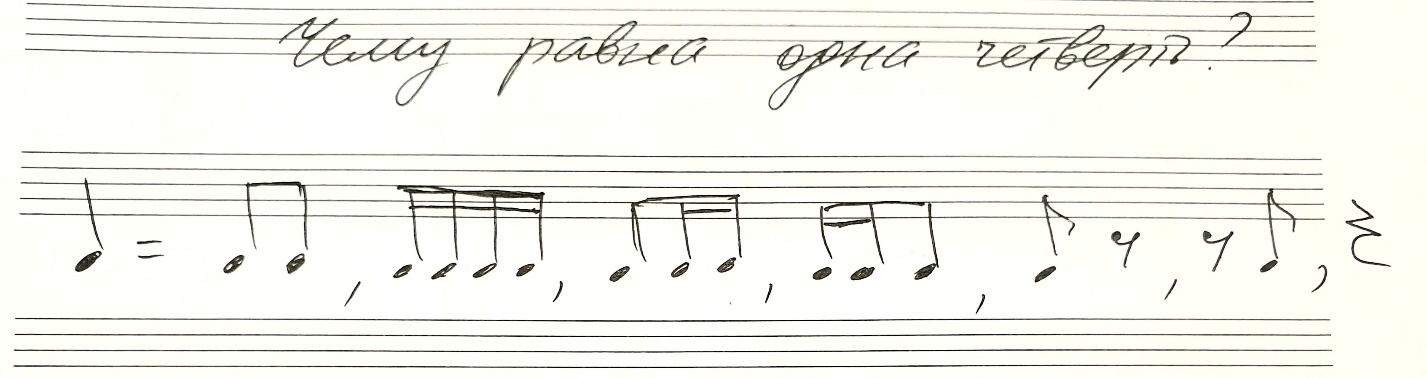 Чему равна одна четверть?